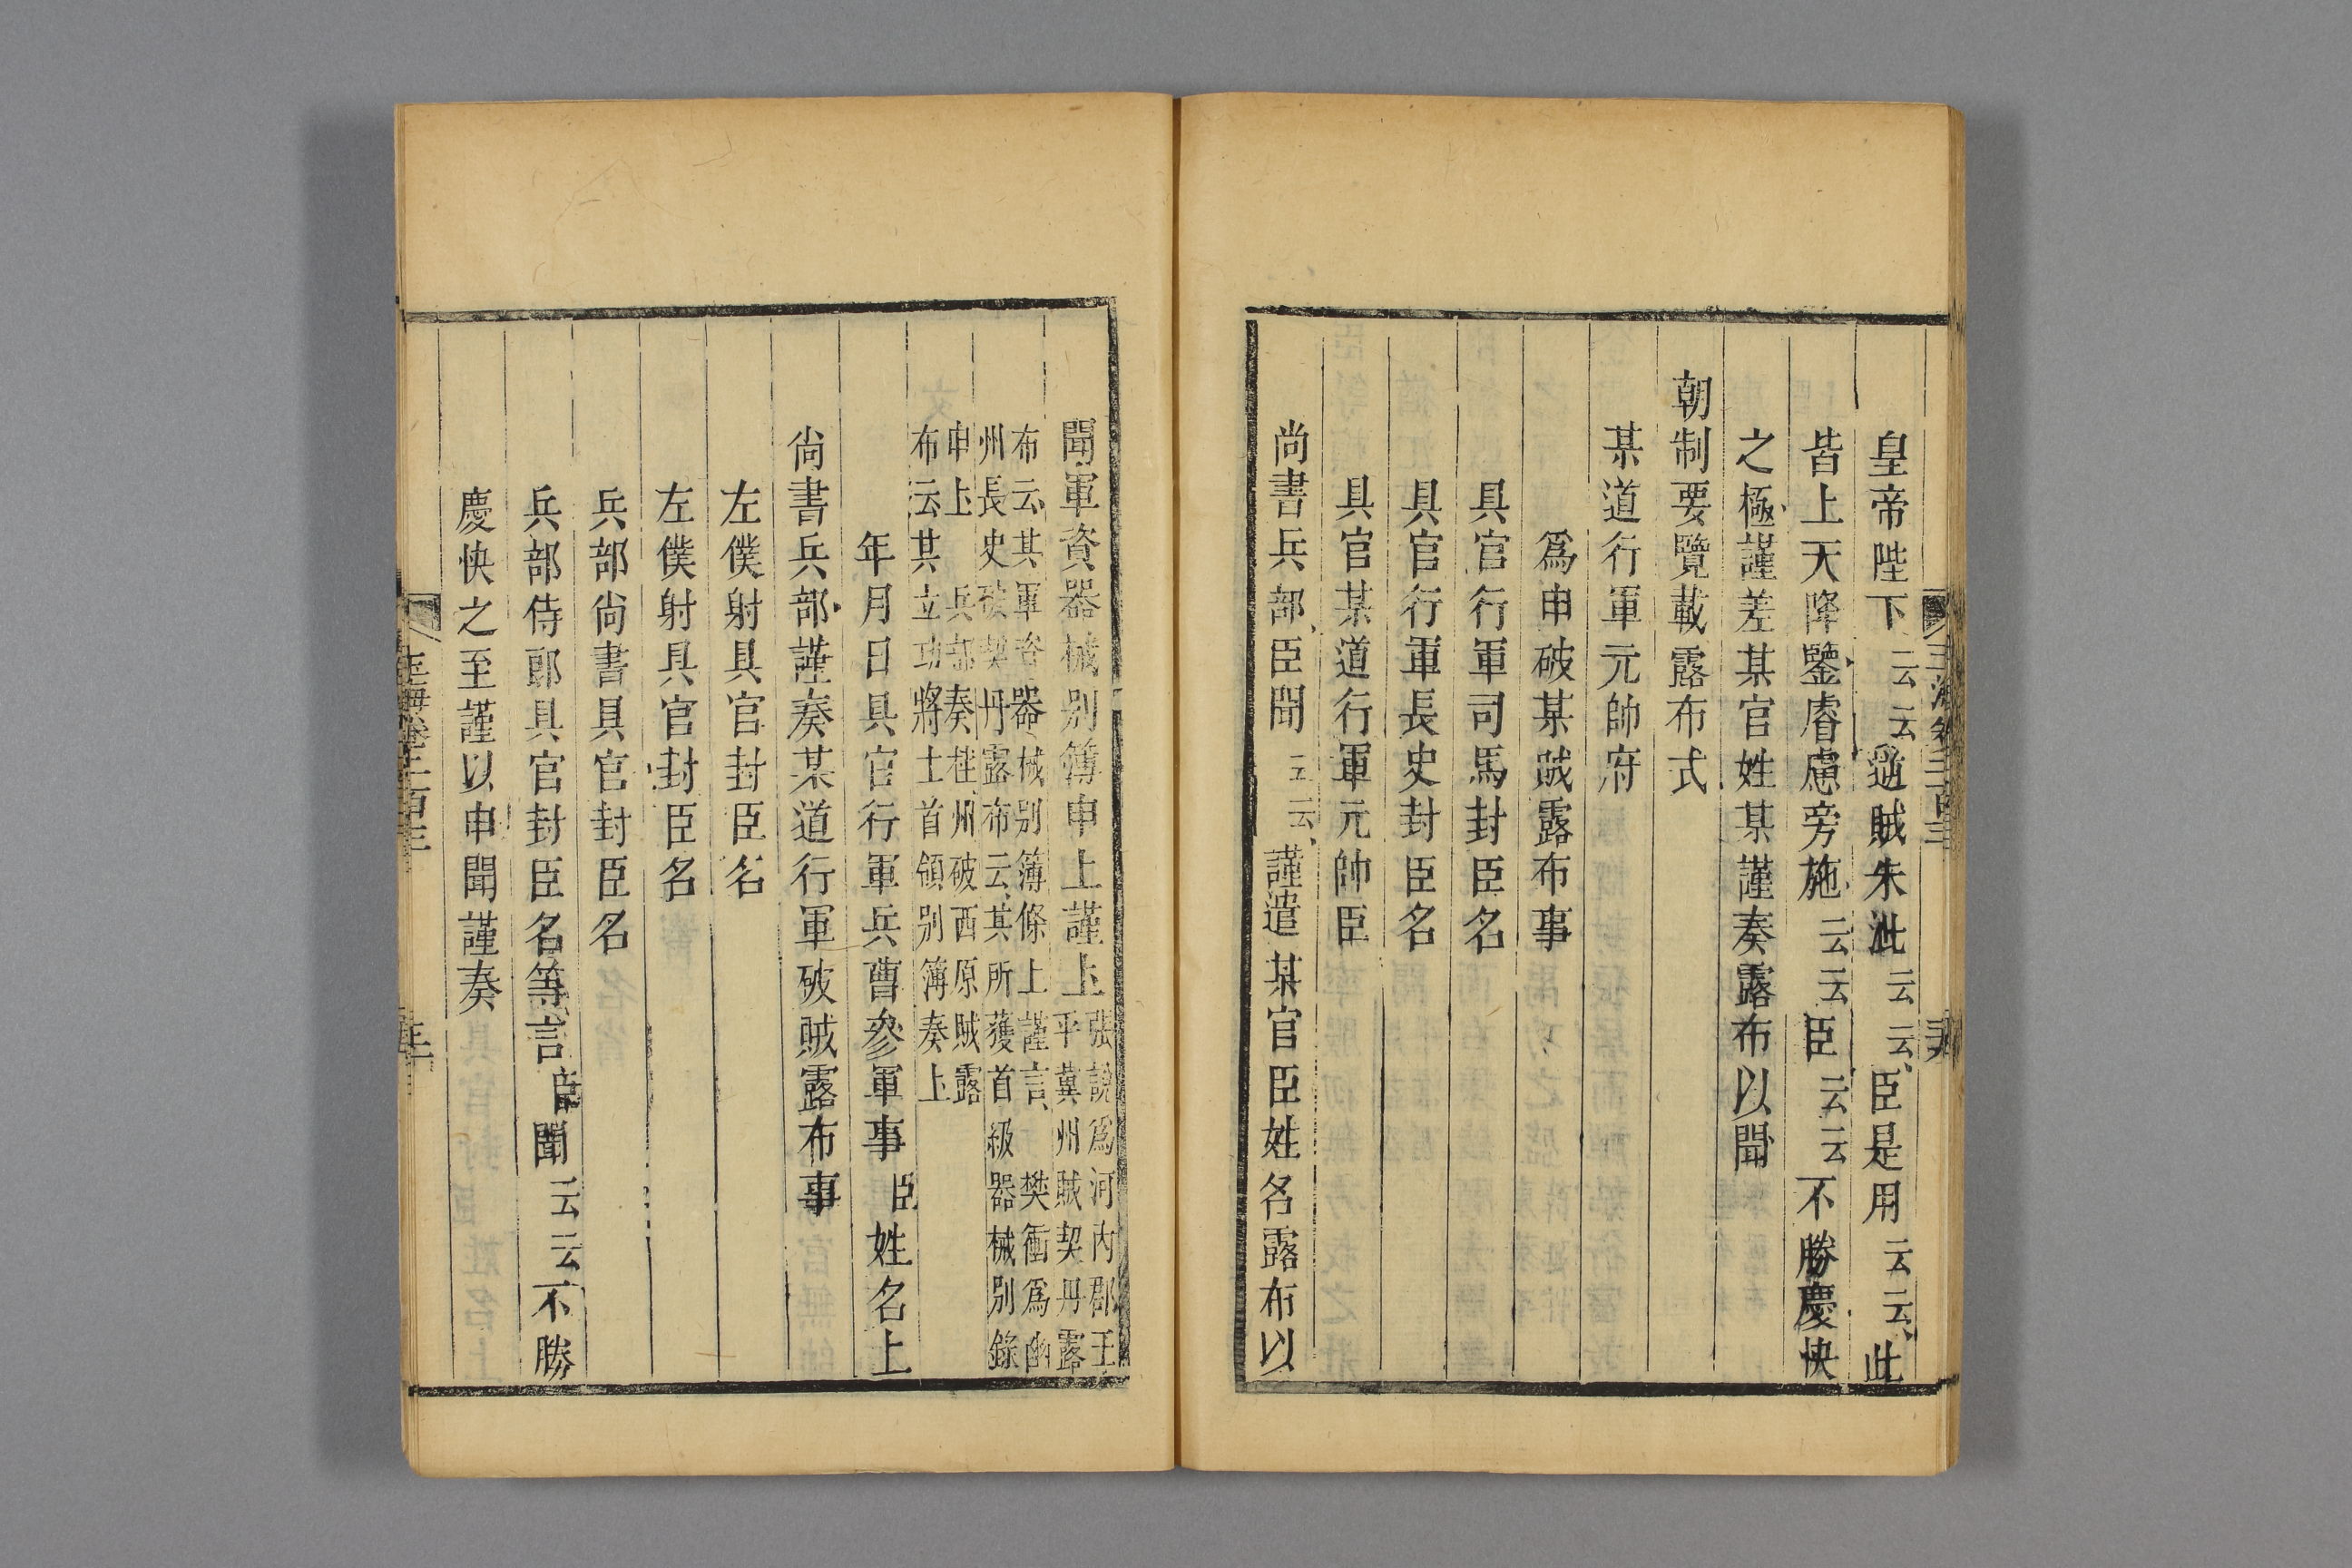 皇帝陛下云云逆賊朱泚云云臣是用云云此
皆上天降鑒睿慮旁施云云臣云云不勝慶快
之極謹差某官姓某謹奏露布以聞
朝制要覽載露布式
某道行軍元帥府
爲申破某賊露布事
具官行軍司馬封臣名
具官行軍長史封臣名
具官某道行軍元帥臣
尚書兵部臣聞云云謹遣某官臣姓名露布以
聞軍資器械别簿申上謹上
張說爲河內郡王
平冀州賊契丹露
布云其軍資器械别簿條上謹言樊衝爲幽
州長史破契丹露布云其所獲首級器械別錄
申上兵部奏桂州破西原賊露
布云其立功將士首領別簿奏上
年月日具官行軍兵曹參軍事臣姓名上
尚書兵部謹奏某道行軍破賊露布事
左僕射具官封臣名
左僕射具官封臣名
兵部尚書具官封臣名
兵部侍郎具官封臣名等言臣聞云云不勝
慶快之至謹以申聞謹奏
玉海卷二百三